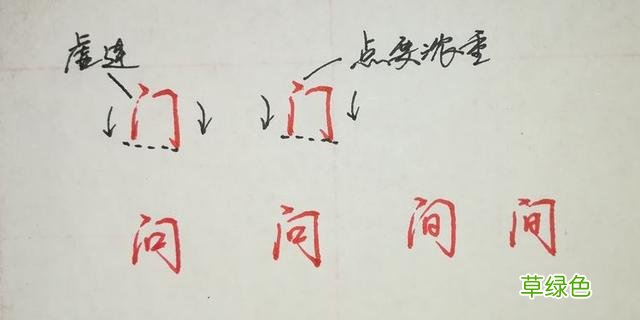 虚连 点要浓重
门 门
问 问 间 间
草绿色